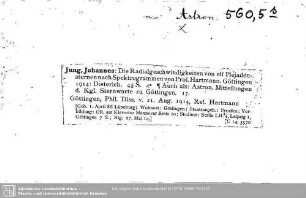 Astron. 560,5
x
Jung, Johannes: Die Radialgeschwindigkeiten von elf Plejaden-
sternen nach Spektrogrammen von Prof. Hartmann. Göttingen
1914: Dieterich. 48 S. 4° ¶ Auch als: Astron. Mitteilungen
d. Kgl. Sternwarte zu Göttingen. 17.
Göttingen, Phil. Diss. v. 21. Aug. 1914, Ref. Hartmann
[Geb. 1. April 86 Lüneburg; Wohnort: Göttingen; Staatsangeh.: Preußen; Vor-
bildung: Göttingen 7 S.; Rig. 27. Mai 14.]
[U 14. 3570